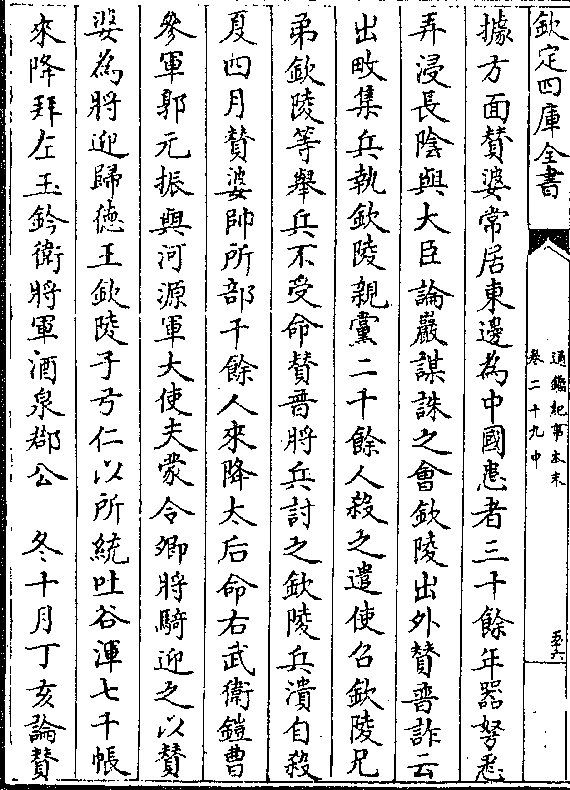 欽定四庫全書
通鑑紀事本末
卷二十九中
五六
據方面贊婆常居東邊為中國患者三十餘年器弩悉
弄浸長陰與大臣論巖謀誅之會欽陵出外贊普詐云
出畋集兵執欽陵親黨二千餘人殺之遣使召欽陵兄
弟欽陵等舉兵不受命贊普將兵討之欽陵兵潰自殺
夏四月贊婆帥所部千餘人來降太后命右武衛鎧曹
參軍郭元振與河源軍大使夫蒙令卿將騎迎之以贊
婆為將迎歸德王欽陵子弓仁以所統吐谷渾七千帳
來降拜左玉鈐衛將軍酒泉郡公　冬十月丁亥論贊